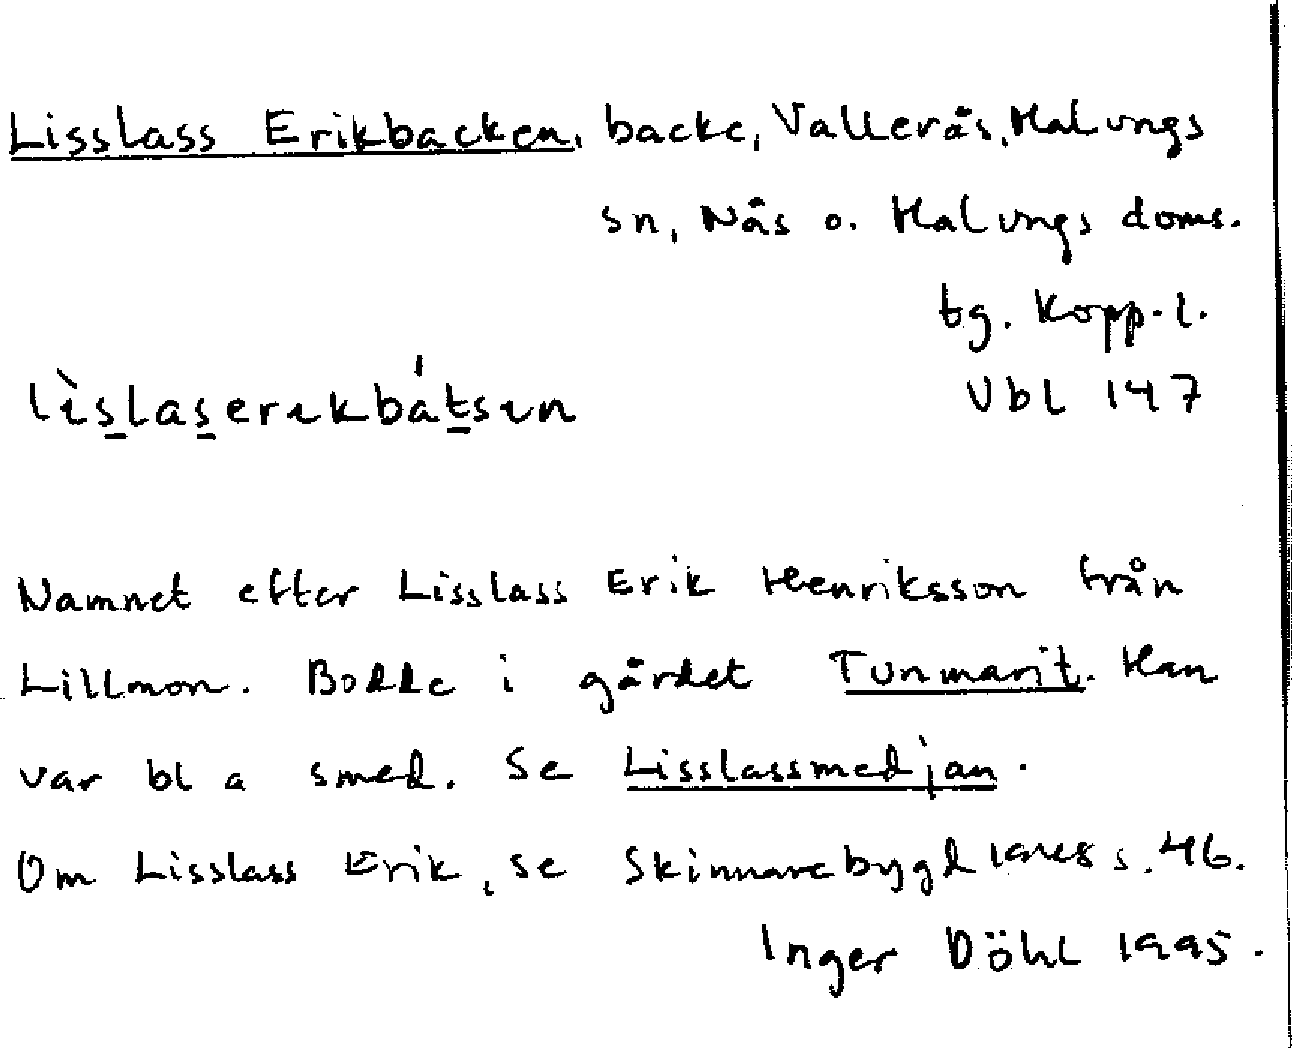 Lisslass Erikbacken, backe, Vallerås, Malungs
sn, Nås o. Malungs doms.
tg. Kopp. l.
Ubl 147
lìslaserɩkbátsɩn
Namnet efter Lisslass Erik Henriksson från
Lillmon. Bodde i gårdet Tunmarit. Han
var bl a smed. Se Lisslassmedjan.
Om Lisslass Erik, se Skinnarebygd 1948 s. 46.
Inger Döhl 1995.